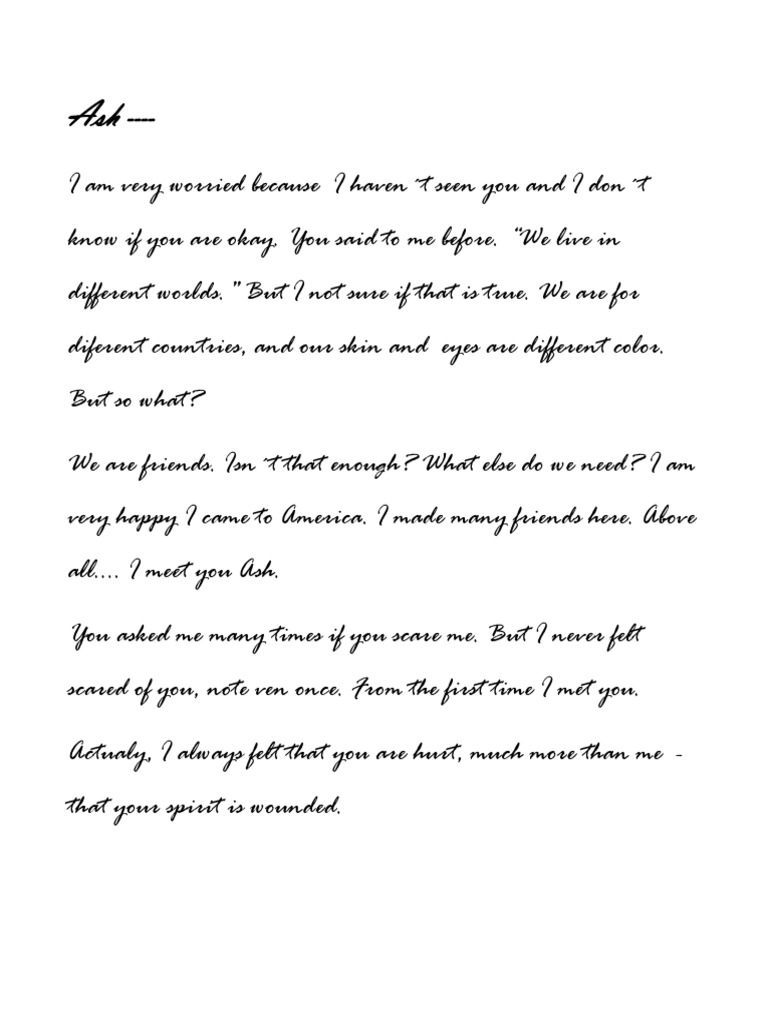 Ash ----
I am very worried because I haven´t seen you and I don´t
know if you are okay. You said to me before. “We live in
different worlds.” But I not sure if that is true. We are for
diferent countries, and our skin and eyes are different color.
But so what?
We are friends. Isn´t that enough? What else do we need? I am
very happy I came to America. I made many friends here. Above
all.... I meet you Ash.
You asked me many times if you scare me. But I never felt
scared of you, note ven once. From the first time I met you.
Actualy, I always felt that you are hurt, much more than me -
that your spirit is wounded.